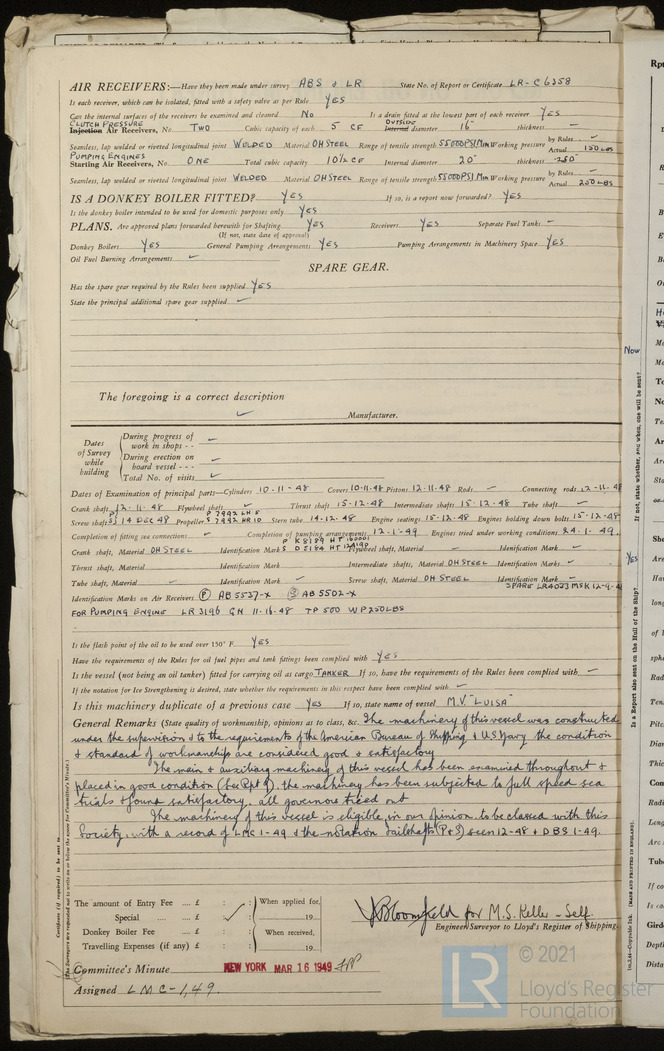 AIR RECEIVERS:—Have they been made under survey ABS & LR State No. of Report or Certificate LR-C6258
Is each receiver, which can be isolated, fitted with a safety valve as per Rule YES
Can the internal surfaces of the receivers be examined and cleaned No Is a drain fitted at the lowest part of each receiver YES
CLUTCH PRESSURE OUTSIDE
Injection Air Receivers, No. TWO Cubic capacity of each 5 CF Internal diameter 16" thickness —
Seamless, lap welded or riveted longitudinal joint WELDED Material OH STEEL Range of tensile strength 55000PSI Min Working pressure by Rules — Actual 150 LBS
PUMPING ENGINES
Starting Air Receivers, No. ONE Total cubic capacity 10½ CF Internal diameter 20" thickness .250"
Seamless, lap welded or riveted longitudinal joint WELDED Material OH STEEL Range of tensile strength 55000PSI Min Working pressure by Rules — Actual 250 LBS
IS A DONKEY BOILER FITTED? YES If so, is a report now forwarded? YES
Is the donkey boiler intended to be used for domestic purposes only YES
PLANS. Are approved plans forwarded herewith for Shafting YES Receivers YES Separate Fuel Tanks —
(If not, state date of approval)
Donkey Boilers YES General Pumping Arrangements YES Pumping Arrangements in Machinery Space YES
Oil Fuel Burning Arrangements
SPARE GEAR.
Has the spare gear required by the Rules been supplied YES
State the principal additional spare gear supplied
The foregoing is a correct description
Manufacturer.
Dates of Survey while building
During progress of work in shops - -
During erection on board vessel - - -
Total No. of visits
Dates of Examination of principal parts—Cylinders 10-11-48 Covers 10-11-48 Pistons 12-11-48 Rods — Connecting rods 12-11-48
Crank shaft 12-11-48 Flywheel shaft — Thrust shaft 15-12-48 Intermediate shafts 15-12-48 Tube shaft —
Screw shaft 14 DEC 48 Propeller Stern tube 14-12-48 Engine seatings 15-12-48 Engines holding down bolts 15-12-48
Completion of fitting sea connections — Completion of pumping arrangements 12-1-49 Engines tried under working conditions 24-1-49
Crank shaft, Material OH STEEL Identification Mark Flywheel shaft, Material — Identification Mark —
Thrust shaft, Material Identification Mark Intermediate shafts, Material OH STEEL Identification Marks
Tube shaft, Material — Identification Mark Screw shaft, Material OH STEEL Identification Mark
Identification Marks on Air Receivers (P) AB 5537-X (S) AB 5502-X
FOR PUMPING ENGINE LR 3196 GN 11-16-48 TP 500 WP 250LBS
Is the flash point of the oil to be used over 150° F. YES
Have the requirements of the Rules for oil fuel pipes and tank fittings been complied with YES
Is the vessel (not being an oil tanker) fitted for carrying oil as cargo TANKER If so, have the requirements of the Rules been complied with —
If the notation for Ice Strengthening is desired, state whether the requirements in this respect have been complied with —
Is this machinery duplicate of a previous case YES If so, state name of vessel M.V. "LUISA"
General Remarks (State quality of workmanship, opinions as to class, &c. The machinery of this vessel was constructed
under the supervision & to the requirements of the American Bureau of Shipping & US Navy the condition
& standard of workmanship are considered good & satisfactory
The main & auxiliary machinery of this vessel has been examined throughout &
placed in good condition (see Rpt 9), the machinery has been subjected to full speed sea
trials & found satisfactory, all governors tried out
The machinery of this vessel is eligible, in our opinion, to be classed with this
Society, with a record of LMC 1-49 & the notation Tailshafts (P&S) seen 12-48 & DBS 1-49.
The amount of Entry Fee .... £ : : When applied for,
Special .... £ : 19
Donkey Boiler Fee .... £ : : When received,
Travelling Expenses (if any) £ : : 19
J Bloomfield for M.S. Keller - Self.
Engineer Surveyor to Lloyd's Register of Shipping.
Committee's Minute NEW YORK MAR 16 1949
Assigned LMC-1,49.
Now
YES
© 2021
LR
Lloyd's Register
Foundation